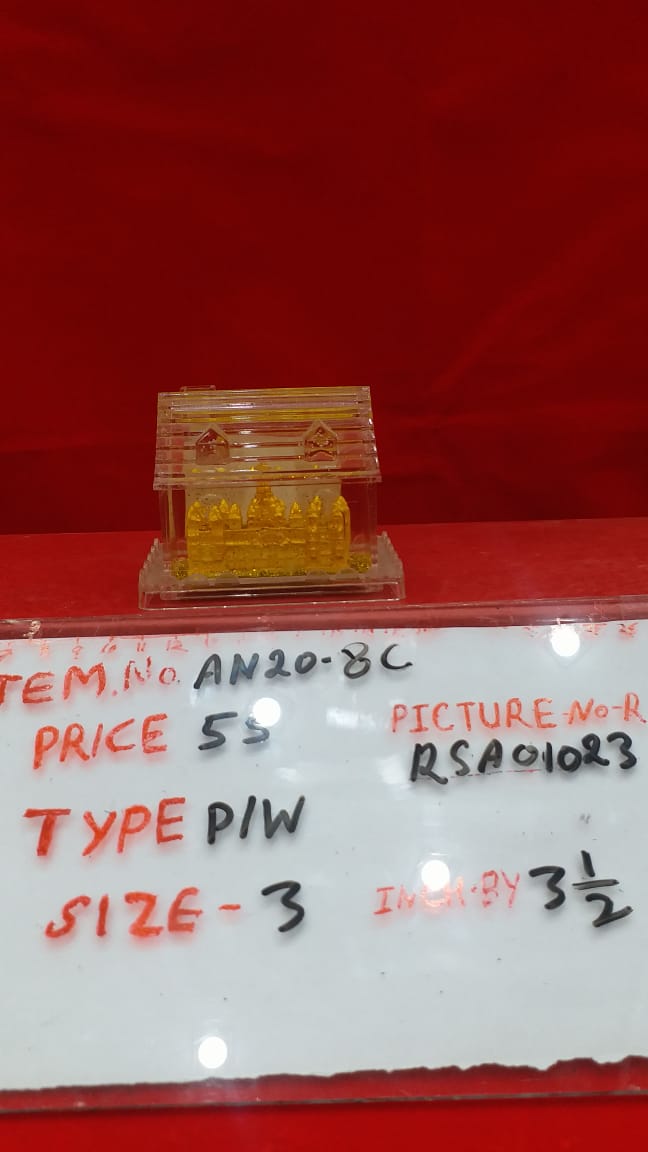 ITEM.No. AN20-8C
PRICE 55
PICTURE-No-R
RSA01023
TYPE P/W
SIZE - 3 INCH-BY 3 1/2